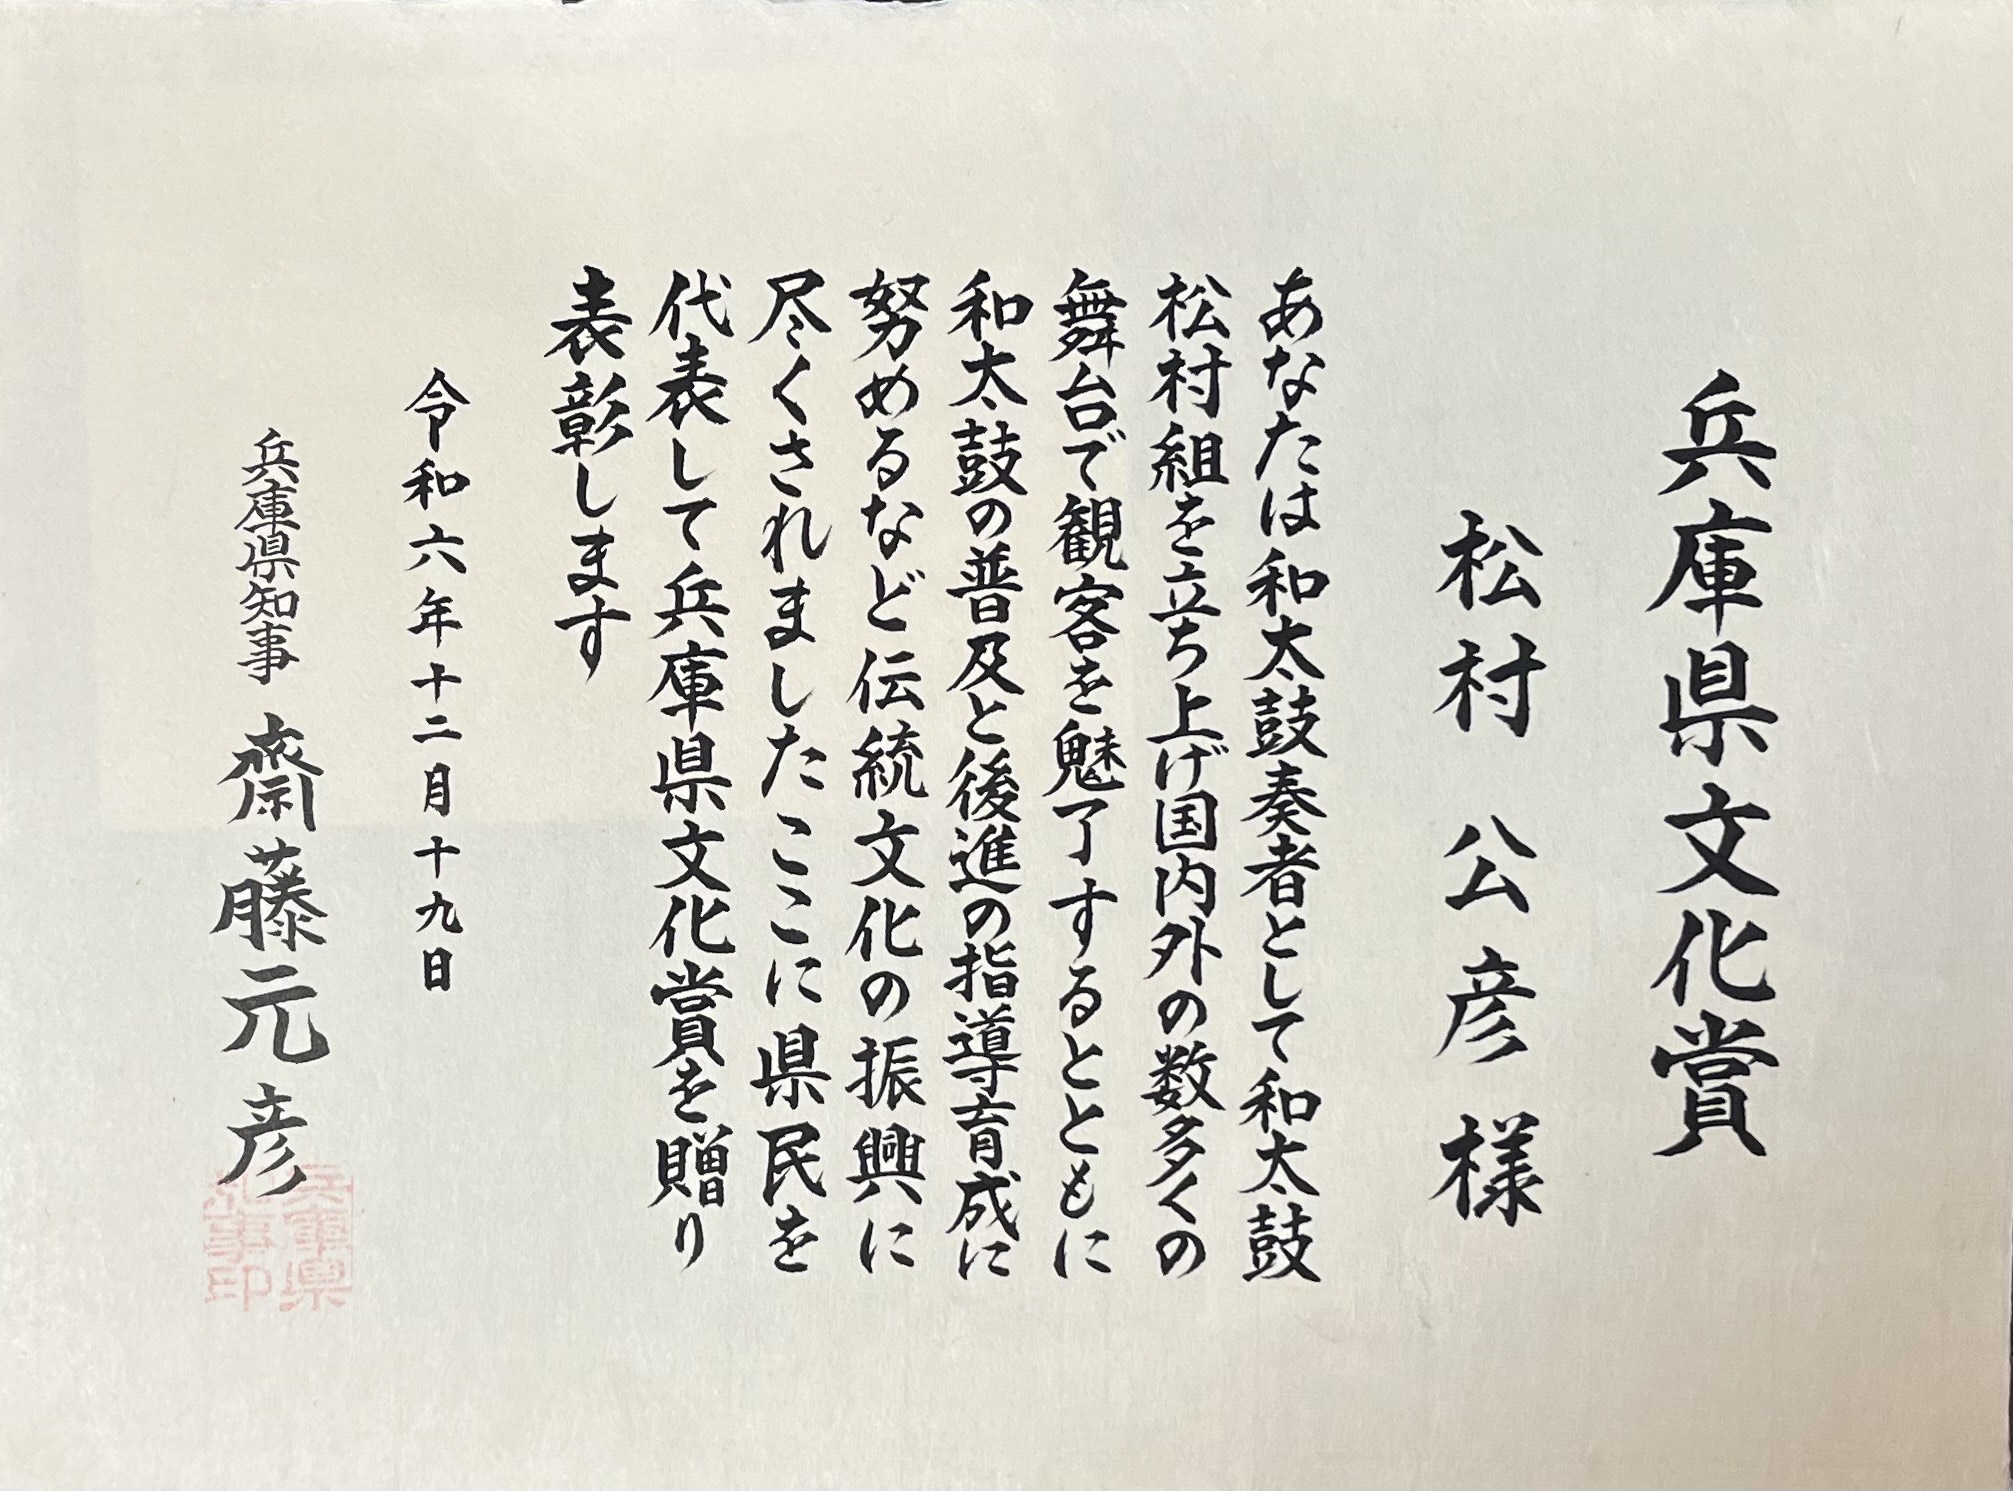 兵庫県文化賞
松村公彦様
あなたは和太鼓奏者として和太鼓
松村組を立ち上げ国内外の数多くの
舞台で観客を魅了するとともに
和太鼓の普及と後進の指導育成に
努めるなど伝統文化の振興に
尽くされましたここに県民を
代表して兵庫県文化賞を贈り
表彰します
令和六年十二月十九日
兵庫県知事 齋藤元彦
兵庫県
知事印